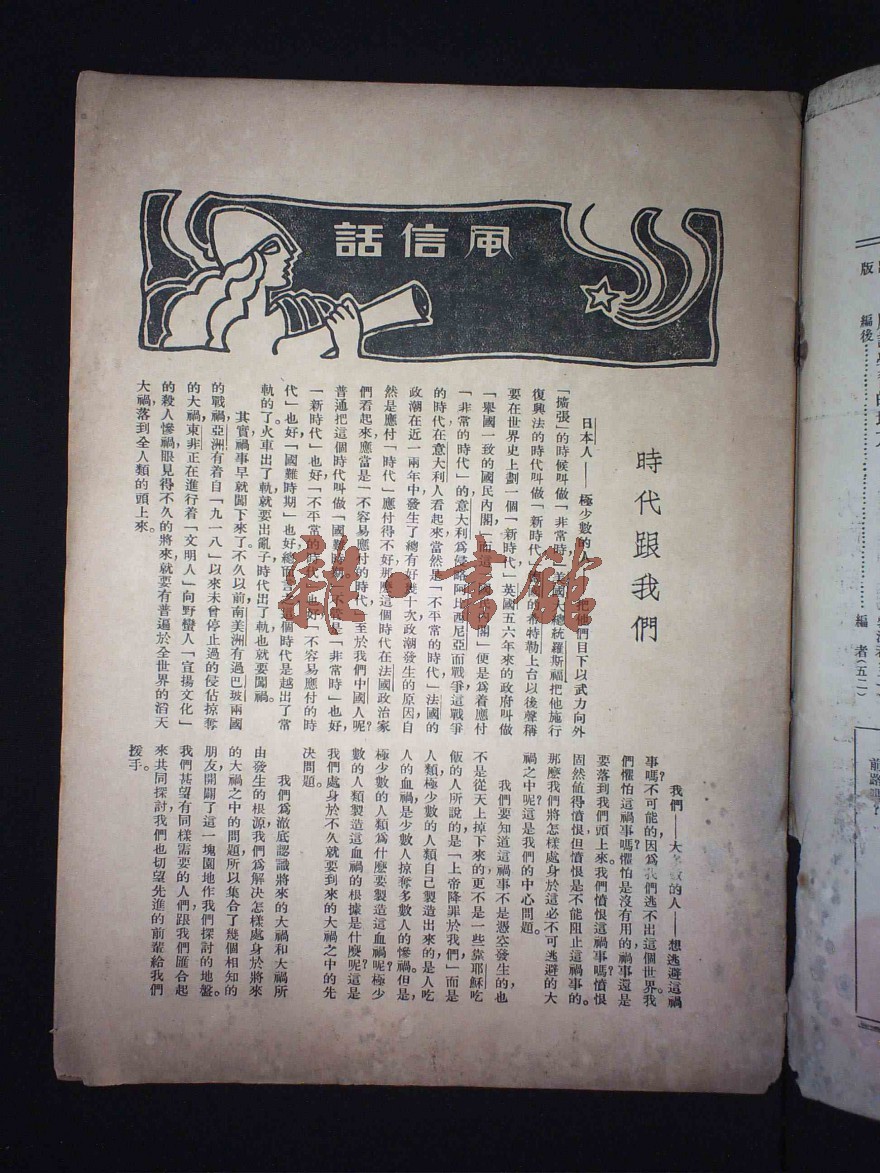 風信話
時代跟我們
日本人——極少數的人——把他們目下以武力向外
「擴張」的時候叫做「非常時」美國大總統羅斯福把他施行
復興法的時代叫做「新時代」德國的希特勒上台以後聲稱
要在世界史上劃一個「新時代」英國五六年來的政府叫做
「舉國一致的國民內閣」而這「國民內閣」便是爲着應付
「非常的時代」的意大利爲侵略阿比西尼亞而戰爭這戰爭
的時代在意大利人看起來當然是「不平常的時代」法國的
政潮在近一兩年中發生了總有好幾十次政潮發生的原因自
然是應付「時代」應付得不好那麼這個時代在法國政治家
們看起來應當是「不容易應付的時代」至於我們中國人呢？
普通把這個時代叫做「國難時期」不管是「非常時」也好，
「新時代」也好「不平常的時代」也好「不容易應付的時
代」也好「國難時期」也好總而言之這個時代是越出了常
軌的了。火車出了軌就要出亂子時代出了軌也就要闖禍。
其實禍事早就闖下來了。不久以前南美洲有過巴玻兩國
的戰禍亞洲有着自「九一八」以來未曾停止過的侵佔掠奪
的大禍東非正在進行着「文明人」向野蠻人「宣揚文化」
的殺人慘禍眼見得不久的將來就要有普遍於全世界的滔天
大禍落到全人類的頭上來。
我們——大多數的人——想逃避這禍
事嗎？不可能的因爲我們逃不出這個世界。我
們懼怕這禍事嗎？懼怕是沒有用的禍事還是
要落到我們頭上來。我們憤恨這禍事嗎？憤恨
固然值得憤恨但憤恨是不能阻止這禍事的。
那麼我們將怎樣處身於這必不可逃避的大
禍之中呢？這是我們的中心問題。
我們要知道這禍事不是憑空發生的，也
不是從天上掉下來的更不是一些靠耶穌吃
飯的人所說的是「上帝降罪於我們」而是
人類極少數的人類自己製造出來的是人吃
人的血禍，是少數人掠奪多數人的慘禍。但是，
極少數的人類爲什麼要製造這血禍呢？極少
數的人類製造這血禍的根據是什麼呢？這是
我們處身於不久就要到來的大禍之中的先
決問題。
我們爲澈底認識將來的大禍和大禍所
由發生的根源我們爲解決怎樣處身於將來
的大禍之中的問題，所以集合了幾個相知的
朋友開闢了這一塊園地作我們探討的地盤。
我們甚望有同樣需要的人們跟我們匯合起
來共同探討，我們也切望先進的前輩給我們
援手。
雜·書館
版
編後
編 者（五二）